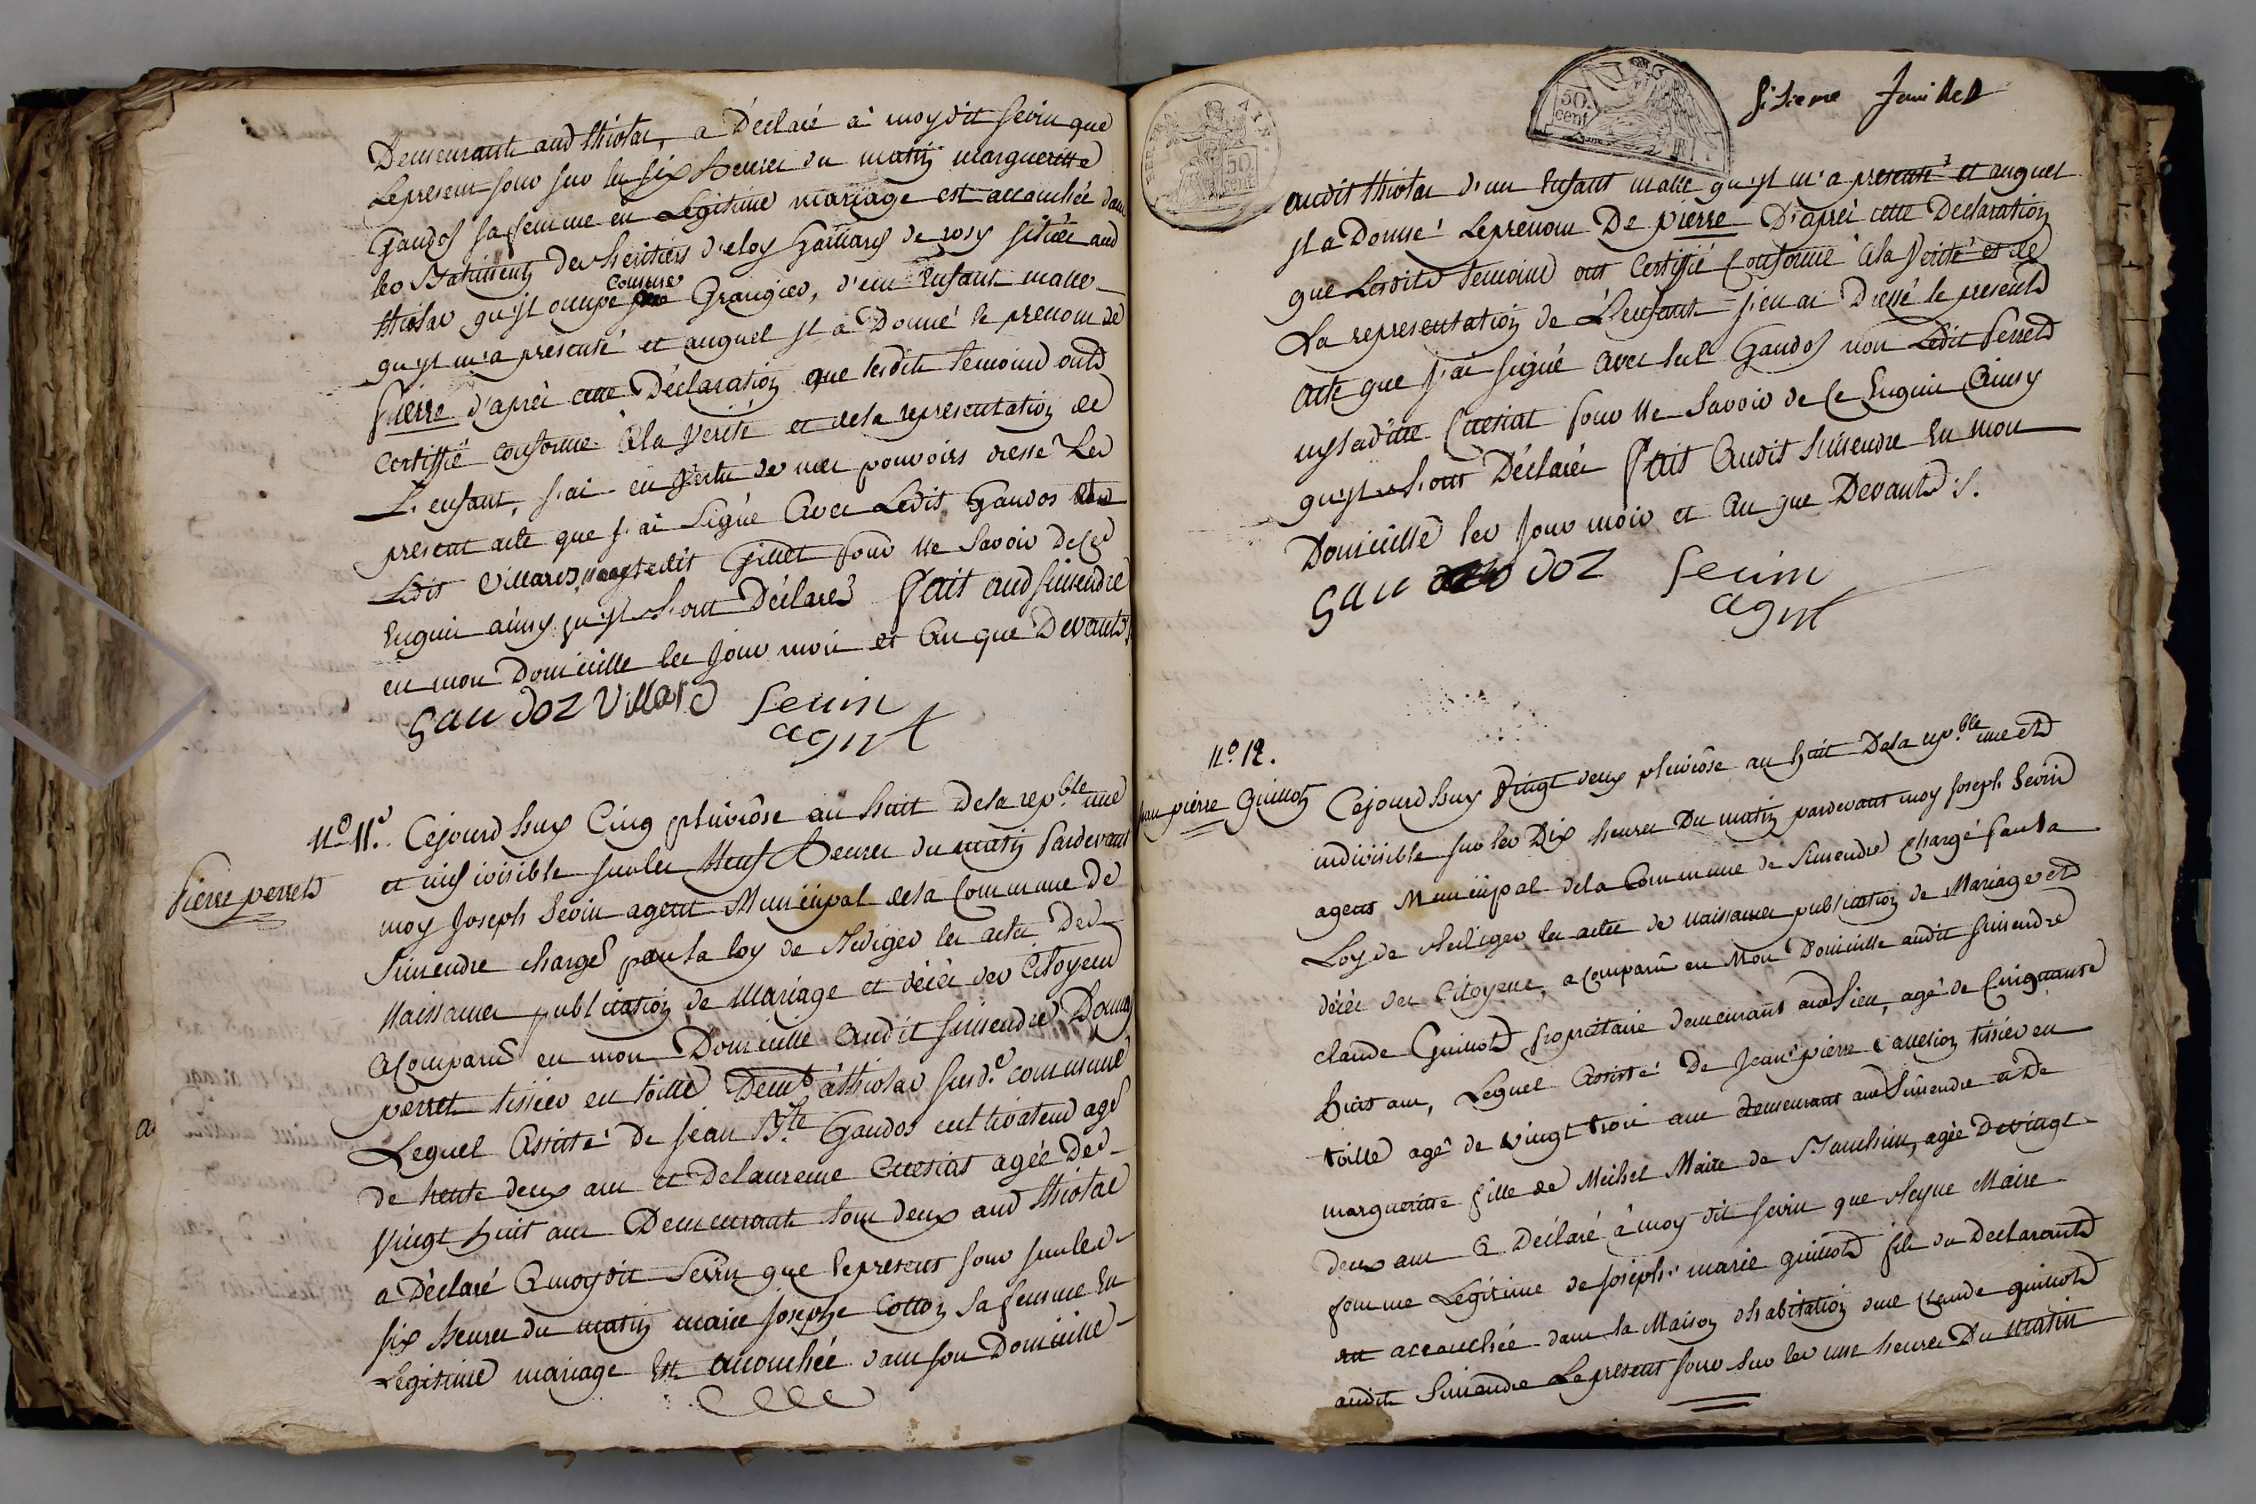 Demeurants aud thiolar, a Déclaré à moydit sevin que
Lepresent jour sur les six heures du matin margueritte
Gaudos sa femme en Legitime mariage est accouchée dans
les Batiments des heritiers d'eloy Gaillard de rosy situés aud
thiolar qu'jl occupe comme Grangier, d'un Enfant malle
qu'jl m'a presenté et auquel jl a Donné le prenom de
pierre d'après cette Déclaration que lesdits temoins ont
certiffié conforme à la verité et dela representation de
L'enfant, j'ai en vertu de mes pouvoirs dressé Le
present acte que j'ai signé avec Ledit Gaudos et
Ledit villard, non ledit Gillet pour ne savoir dece
Enquis ainsy qu'jl s'ont Déclaré fait aud simendre
en mon Domicille les jour mois et an que Devant
Gaudoz villard sevin
agnt
n.º 11. Cejourd'huy Cinq pluviôse an huit dela rep.ble une
et indivisible sur les neuf heures du matin Pardevant
Pierre perret
moy Joseph Sevin agent Municipal dela Commune de
Simendre chargé par la loy de Rediger les actes de
Naissances publication de mariage et décès des Citoyens
acomparu en mon Domicille audit simendre
perret tissier en toille Dem.t à thiolar sus d.e commune
Lequel assisté de jean B.te Gaudos cultivateur agé
de trente deux ans et delaurence Cuesiat agée de
vingt huit ans Demeurants tous deux aud thiolar
a Déclaré amoydit Sevin que lepresent jour sur les
six heures du matin marie josephe Cotton sa femme En
Legitime mariage Est accouchée dans son Domicille
sisieme feuillet
audit thiolar d'un Enfant malle qu'jl m'a presenté et auquel
jl a Donné Leprenom De pierre D'après cette Declaration
que Lesdits temoins ont Certiffié Conforme à la verité et de
La representation de L'enfant j'en ai Dressé le present
acte que j'ai signé avec led Gaudos non Ledit Perret
ny ladite Cuesiat pour ne savoir de ce Enquis Ainsy
qu'jl s'ont Déclaré fait Audit simendre En mon
Domicille les jour mois et an que Devant
Gau doz sevin
agnt
n.º 12.
jean pierre Guillot Cejourd'huy vingt deux pluviôse an huit Dela rep.ble une et
indivisible sur les Dix heures Du matin pardevant moy Joseph Sevin
agent Municipal dela Commune de Simendre chargé par la
Loy de Rediger les actes de naissances publication de Mariage et
décès des Citoyens, acomparu en Mon Domicille audit simendre
claude Guillot proprietaire demeurant aud lieu, agé de Cinquante
huit ans, Lequel Assisté De Jean pierre tissier en
toille agé de vingt trois ans demeurant aud simendre et De
margueritte fille de Michel Maire de S.t , agée De vingt
deux ans a Déclaré à moy dit sevin que Reyne Maire
femme Legitime de joseph marie guillot fils du Declarant
est accouchée dans la Maison d'habitation dud claude guillot
audit Simendre Lepresent jour sur les une heures Du matin